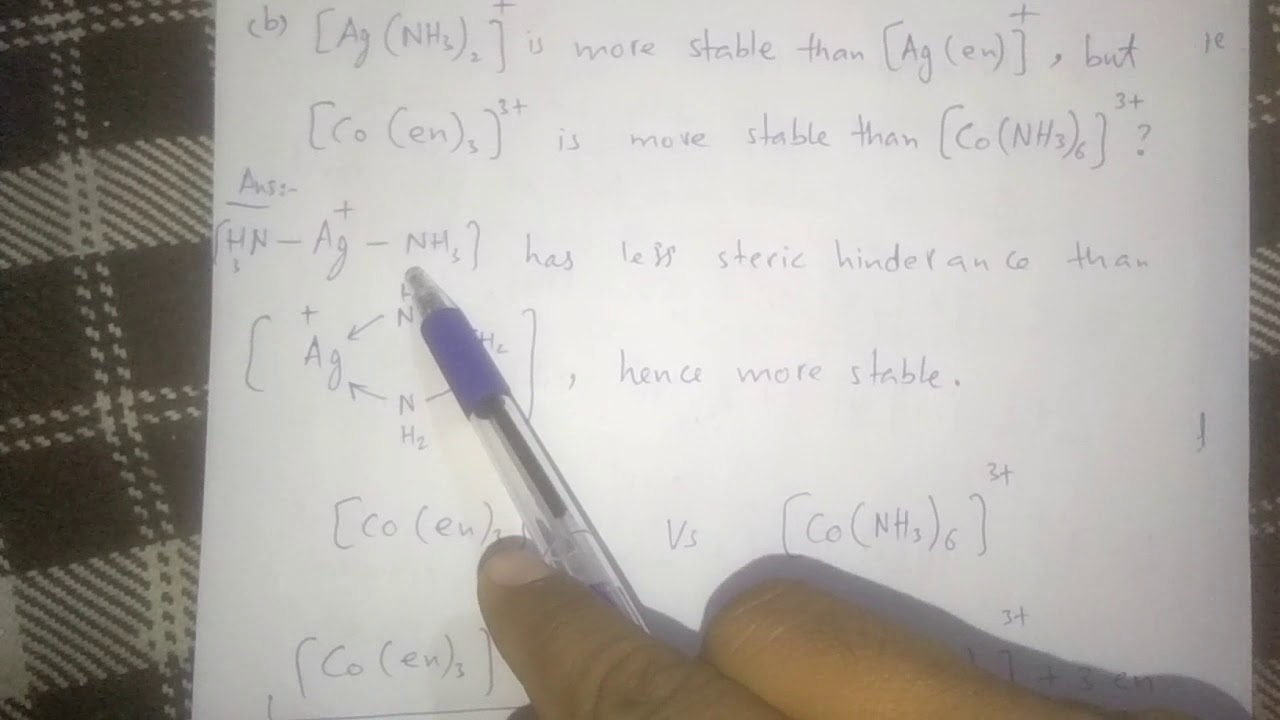 (b) [Ag(NH₃)₂]⁺ is more stable than [Ag(en)]⁺, but
[Co(en)₃]³⁺ is more stable than [Co(NH3)₆]³⁺?
Ans:-
[H₃N – Ag⁺ – NH₃] has less steric hinderance than
[ Ag⁺ N
H₂
N
H₂ ] , hence more stable.
[Co(en)₃ Vs [Co(NH₃)₆]³⁺
[Co(en)₃] ]³⁺ + 3 en